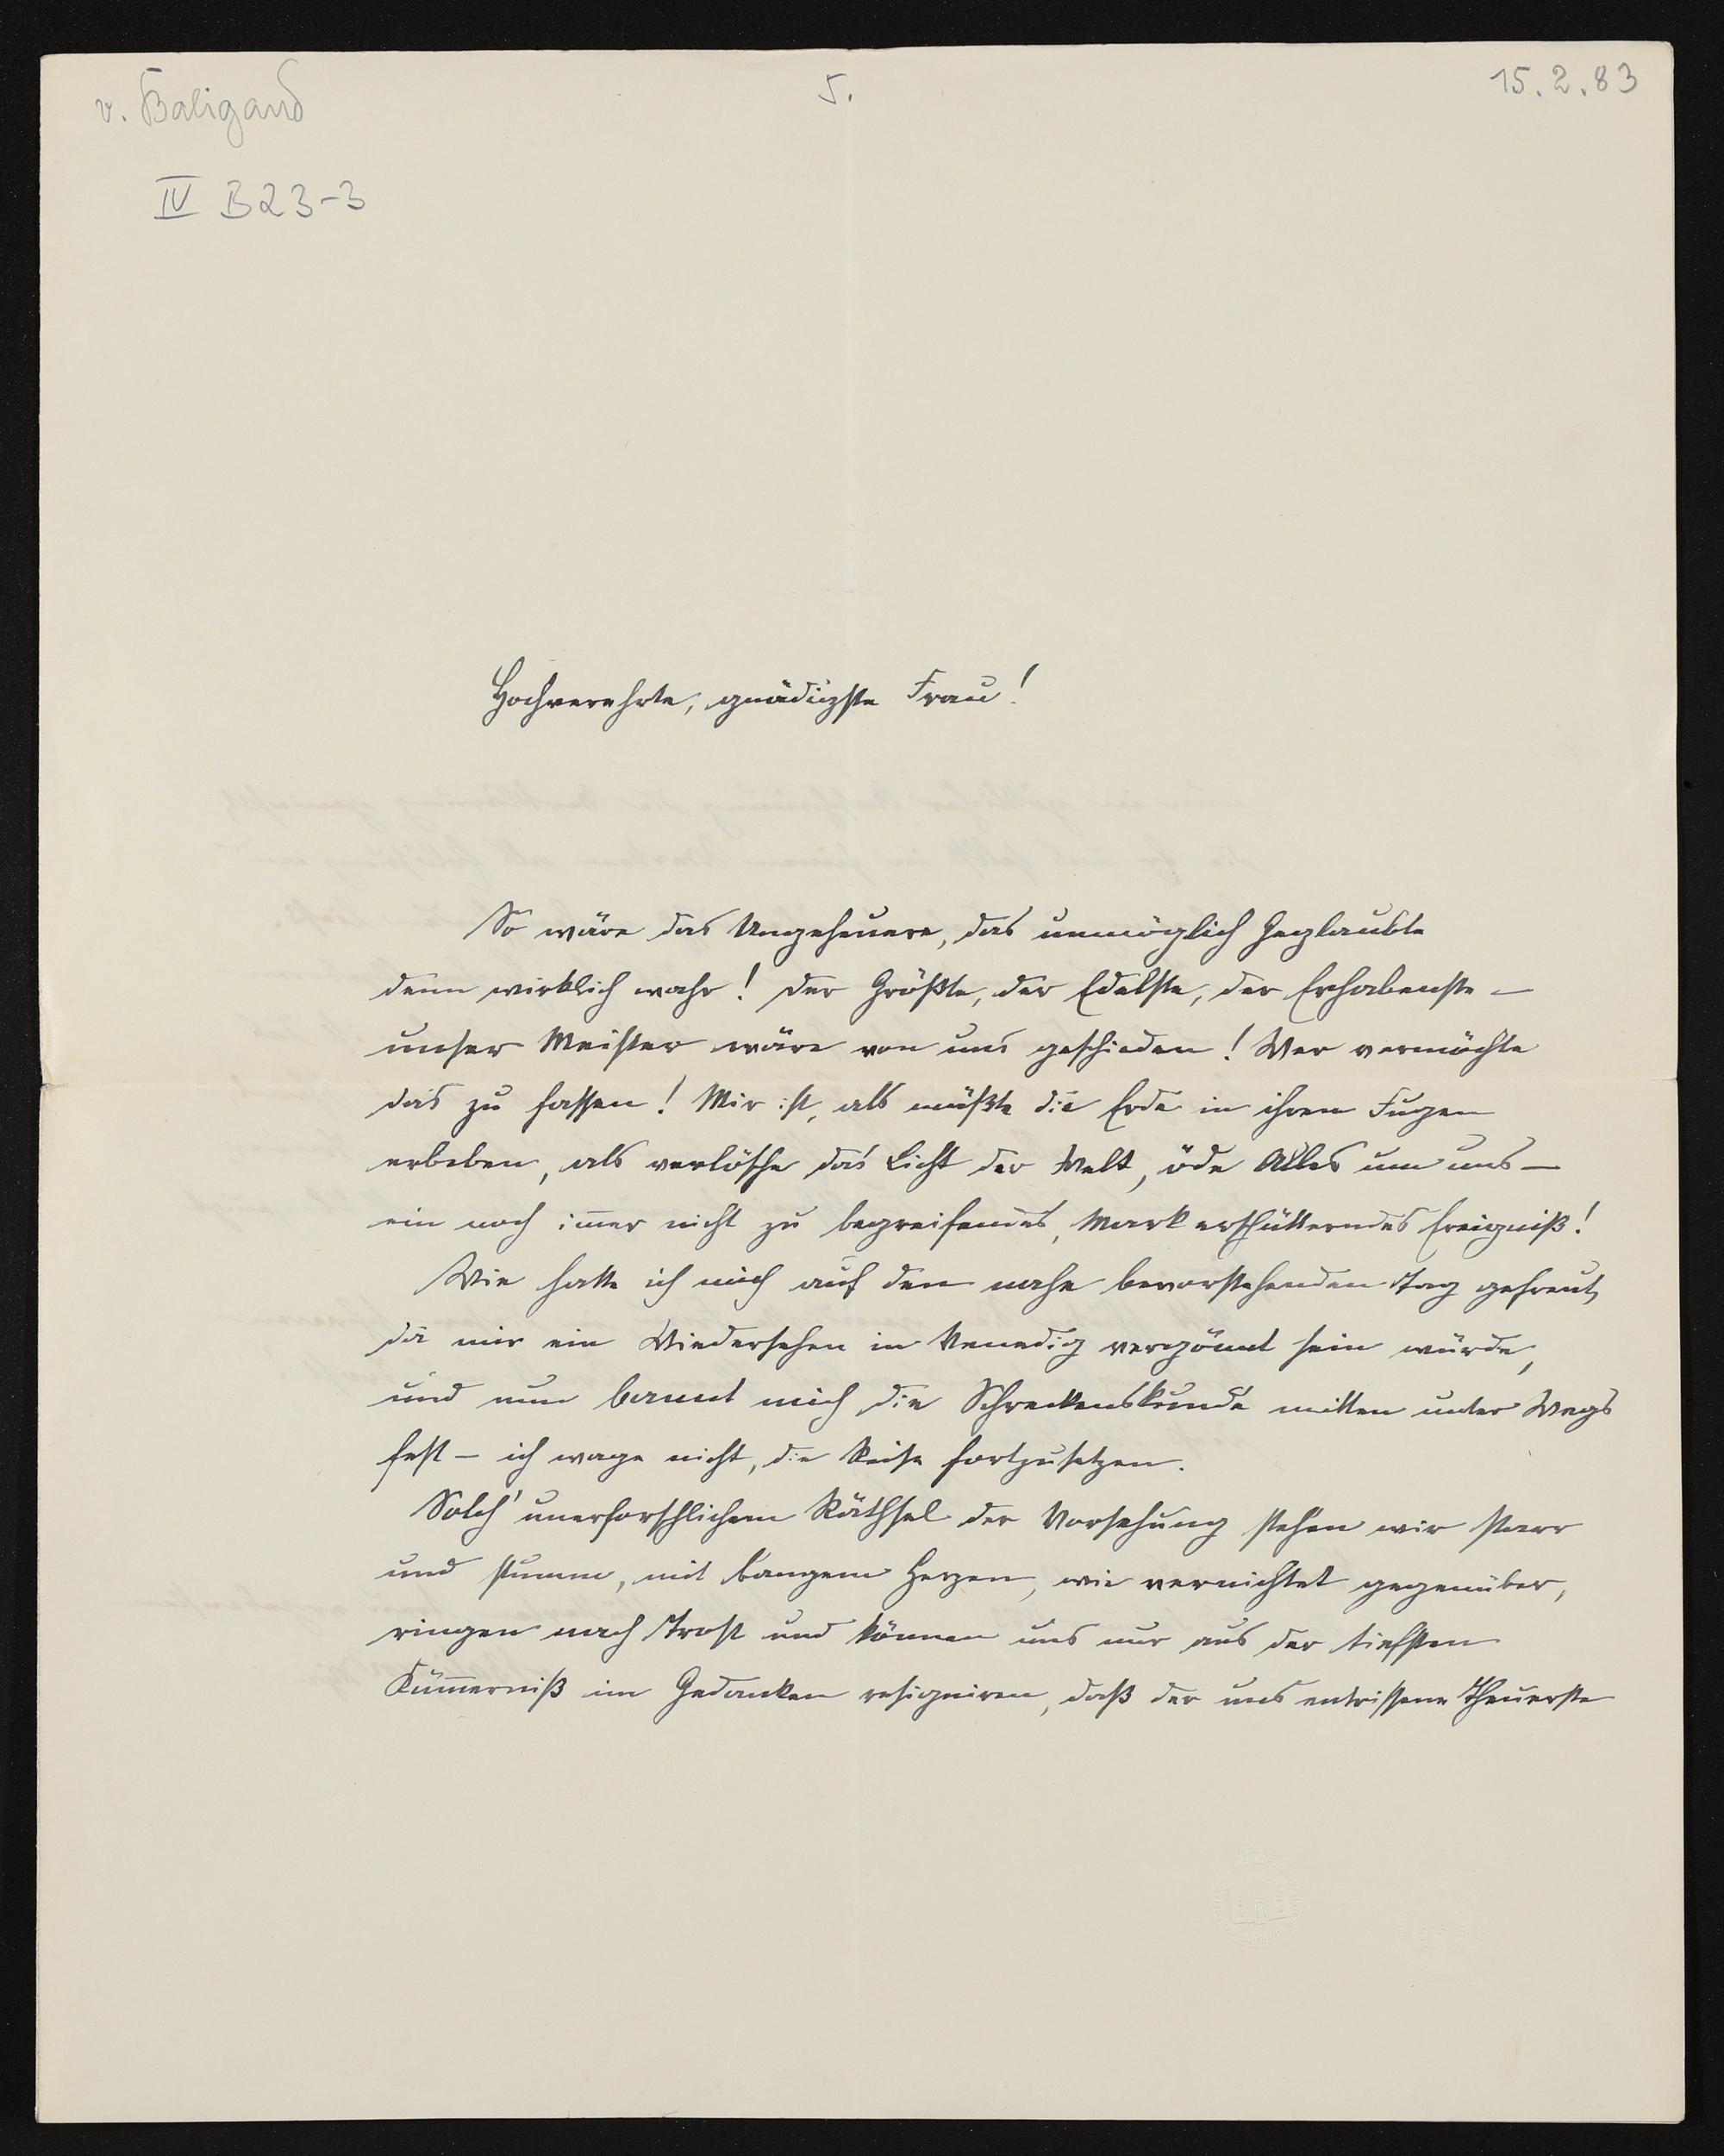 v. Baligand
5.
15.2.83
IV B23-3
Hochverehrte, gnädigste Frau!
So wäre das Ungeheuere, das unmöglich Geglaubte
denn wirklich wahr! Der Größte, der Edelste, der Erhabenste –
unser Meister wäre von uns geschieden! Wer vermöchte
das zu fassen! Mir ist, als müßte die Erde in ihren Fugen
erbeben, als verlösche das Licht der Welt, öde Alles um uns –
ein noch im̄er nicht zu begreifendes, Mark erschütterndes Ereigniß!
Wie hatte ich mich auf den nahe bevorstehenden Tag gefreut,
da mir ein Wiedersehen in Venedig vergönnt sein würde,
und nun bannt mich die Schreckenskunde mitten unter Wegs
fest – ich wage nicht, die Reise fortzusetzen.
Solch' unerforschlichem Räthsel der Vorsehung stehen wir starr
und stumm, mit bangem Herzen, wie vernichtet gegenüber,
ringen nach Trost und können uns nur aus der tiefsten
Küm̄erniß im Gedanken resigniren, daß der uns entrissene Theuerste